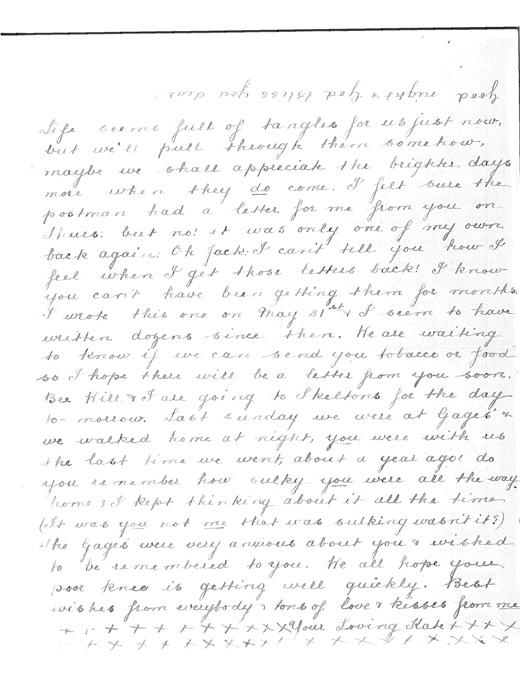 Good night & God bless you dear.
Life seems full of tangles for us just now,
but we'll pull through them somehow,
maybe we shall appreciate the brighter days
more when they do come. I felt sure the
postman had a letter for me from you on
Thurs: but no! it was only one of my own
back again: Oh Jack: I can't tell you how I
feel when I get those letters back! I know
you can't have been getting them for months.
I wrote this one on May 31st & I seem to have
written dozens since then. We are waiting
to know if we can send you tobacco or food
so I hope there will be a letter from you soon.
Bee Kill & I are going to Skeltons for the day
to-morrow. Last Sunday we were at Gages' &
we walked home at night, you were with us
the last time we went, about a year ago: do
you remember how sulky you were all the way
home? I kept thinking about it all the time.
(It was you not me that was sulking wasn't it?)
the Gages were very anxious about you & wished
to be remembered to you. We all hope your
poor knee is getting well quickly. Best
wishes from everybody & tons of love & kisses from me
x x x x x x x x x x x Your Loving Kate x x x x
x x x x x x x x x x x x x x x x x x x